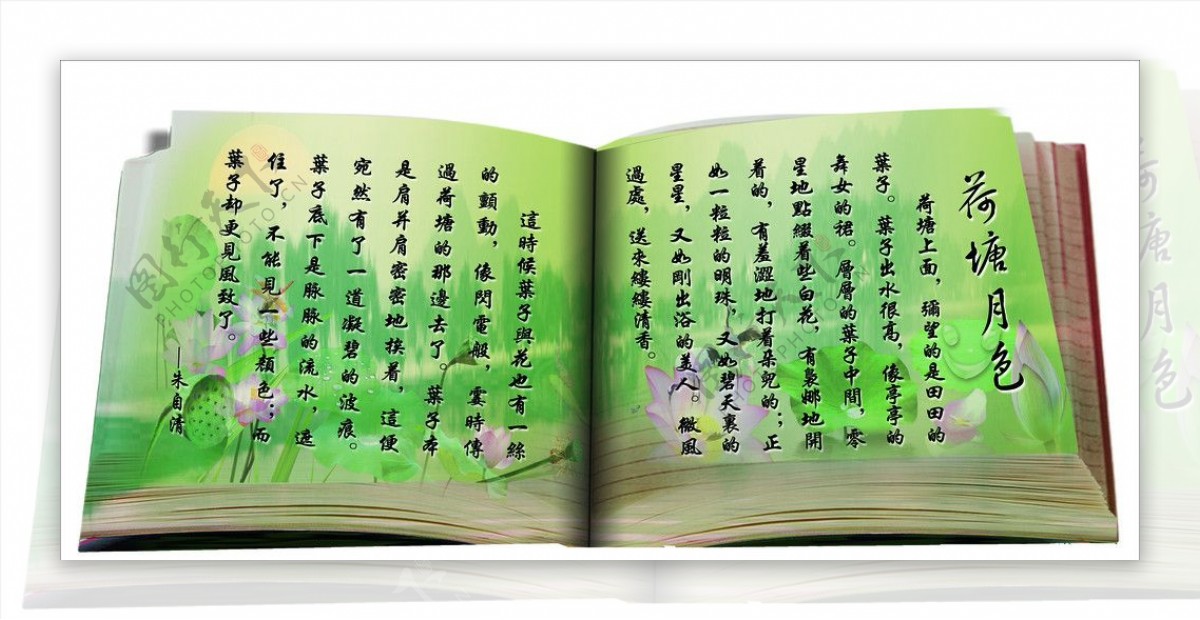 荷塘月色
荷塘上面，彌望的是田田的
葉子。葉子出水很高，像亭亭的
舞女的裙。層層的葉子中間，零
星地點綴着些白花，有裊娜地開
着的，有羞澀地打着朵兒的；正
如一粒粒的明珠，又如碧天裏的
星星，又如剛出浴的美人。微風
過處，送來縷縷清香。
這時候葉子與花也有一絲
的顫動，像閃電般，霎時傳
過荷塘的那邊去了。葉子本
是肩并肩密密地挨着，這便
宛然有了一道凝碧的波痕。
葉子底下是脉脉的流水，遮
住了，不能見一些顏色；而
葉子却更見風致了。
—朱自清